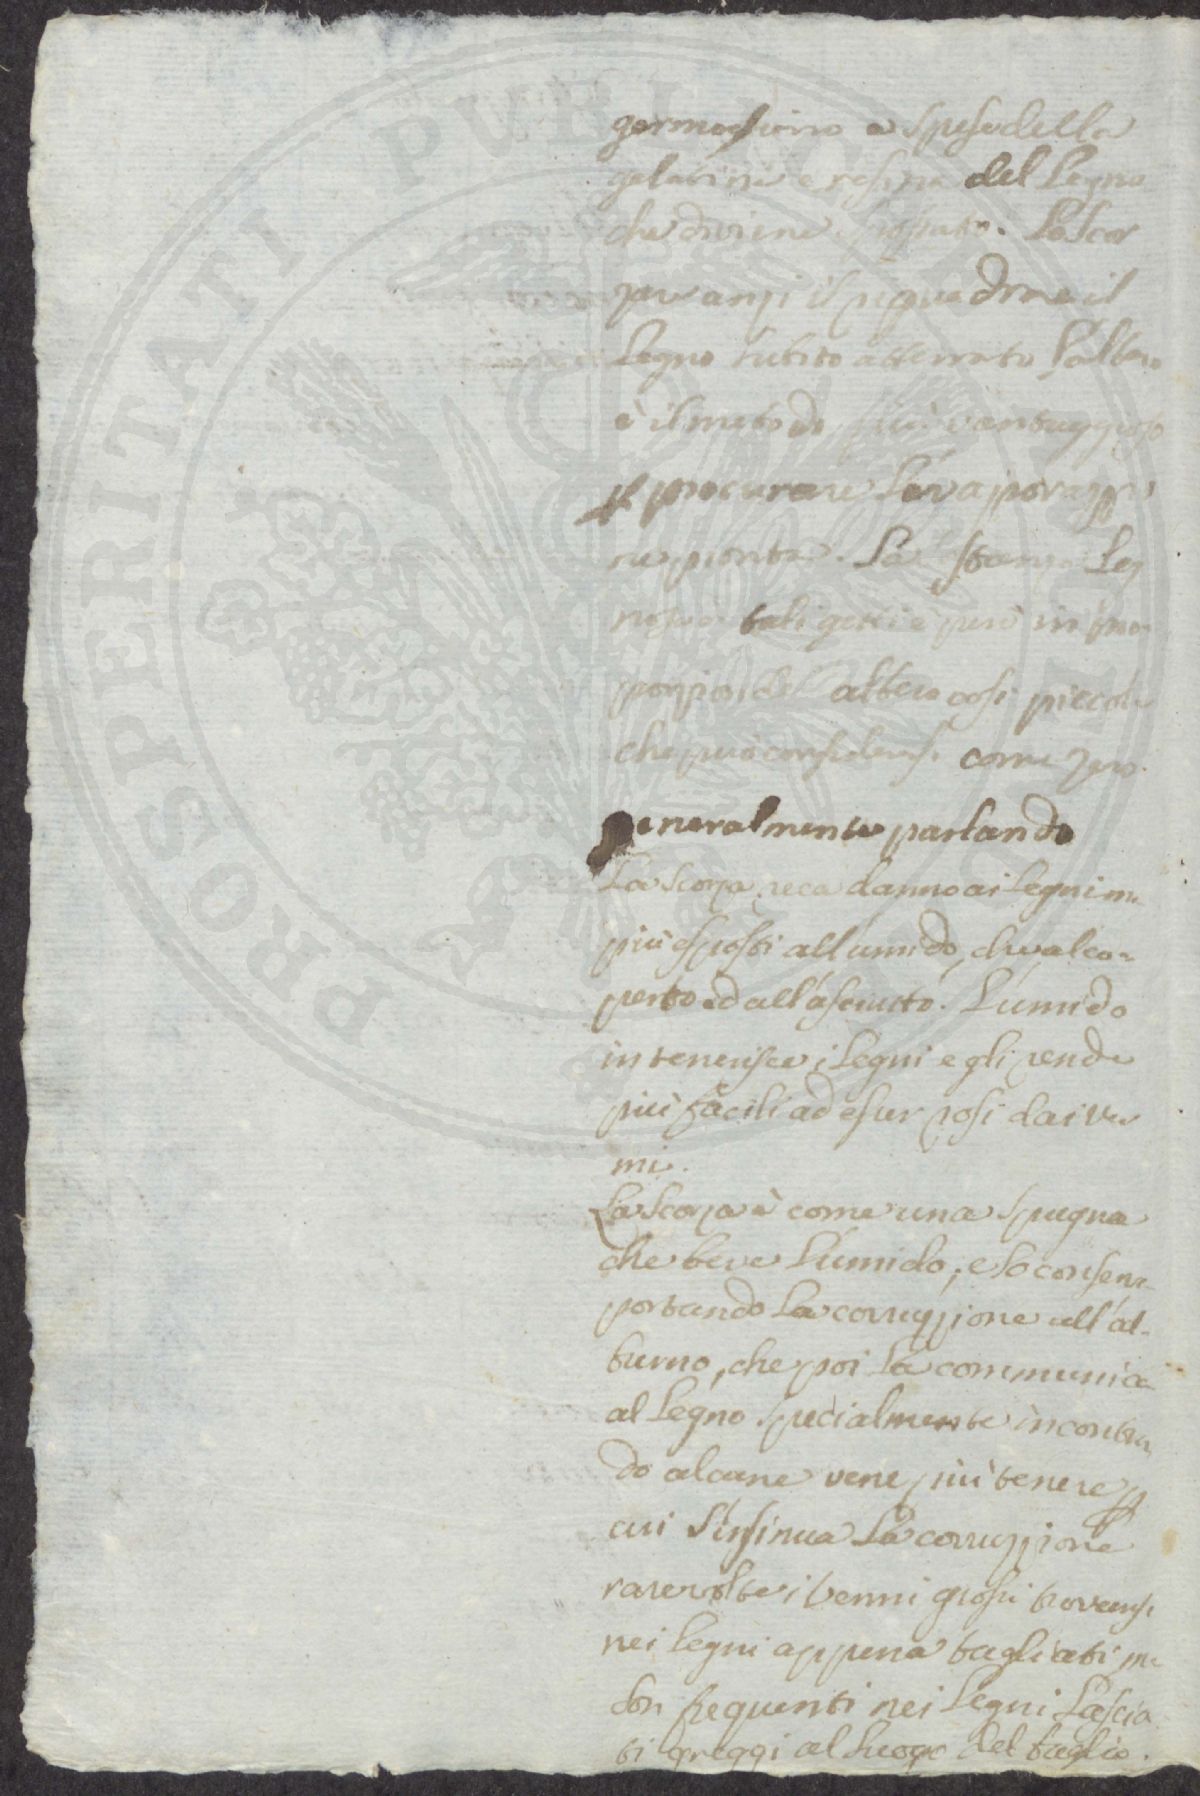 germogliano a spese della
gelatina e resina del Legno
che diviene spossato. Lo Scor
zare anzi il riquadrare il
Legno subito atterrato l'albero
è il metodo più vantaggioso
p procurare l'evaporazione
più pronta. La stanza Leg
nosa tali getti è però in pro-
porzion dell albero così piccola
che può considerarsi come zero.
generalmente parlando
La Scorza reca danno ai Legnimi
più esposti all'umido, che al co=
perto ed all'asciutto. L'umido
intenerisce i Legni e gli rende
più facili ad esser rosi dai ver
mi.
La Scorza è come una spugna
che beve l'umido; e lo conserva
portando la corruzzione all'al-
burno, che poi la communica
al Legno specialmente incontran
do alcune vene più tenere p
cui s'insinua la corruzzione
rare volte i vermi grossi trovansi
nei Legni appena tagliati, ma
son frequenti nei Legni Lascia
ti greggi al luogo del taglio.
PROSPERITATI PUBLICAE